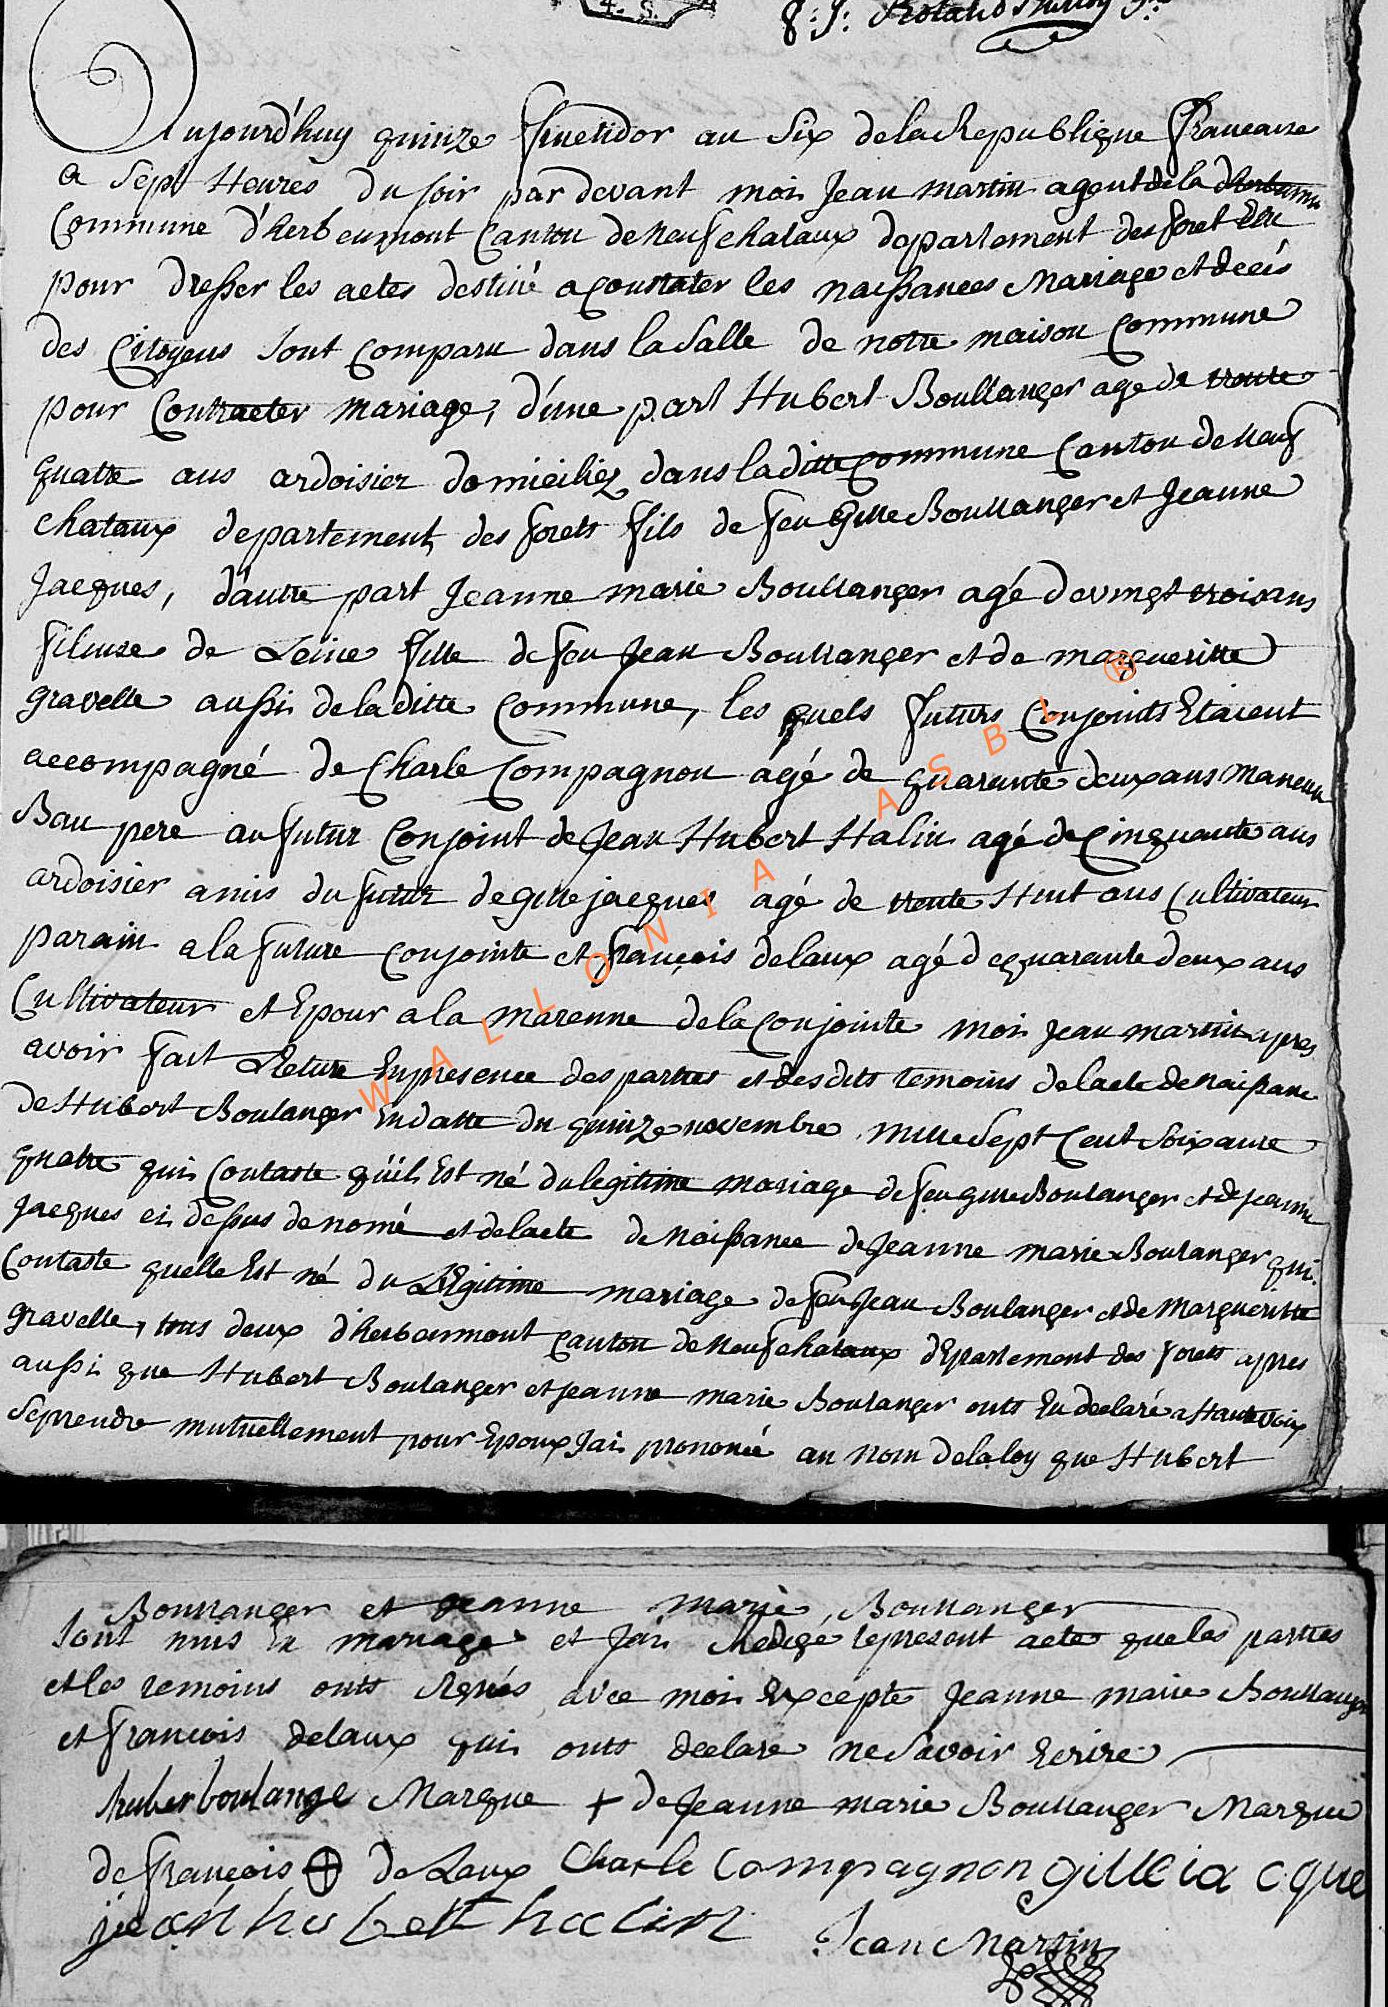 4. S.
Aujourd'huy quinze fructidor an Six de la Republique francaise
a Sept Heures du soir par devant moi Jean martin agent de la
Commune d'herbeumont Canton de neufchataux departement des foret Elu
pour dresser les actes destiné a constater les naissances Mariage et deces
des Citoyens sont comparu dans la Salle de notre maison Commune
pour Contracter mariage, d'une part Hubert Boullanger agé de trente
quatre ans ardoisier domicilié dans la ditte commune Canton de neuf
chataux departement des forets fils de feu Gille Boullanger et Jeanne
Jacques, d'autre part Jeanne marie Boullanger agé de vingt trois ans
fileuse de Leine fille de feu Jean Boullanger et de margueritte
gravelle aussi de la ditte Commune, les quels futurs Conjoints Etaient
accompagné de Charle Compagnon agé de quarante deux ans
Bau pere au futur Conjoint de Jean Hubert Halin agé de Cinquante ans
ardoisier amis du futur de gille jacques agé de trente Huit ans Cultivateur
parain a la future conjointe et françois delaux agé de quarante deux ans
Cultivateur et Epoux a la marenne de la conjointe moi Jean martin apres
avoir fait Lecture En presence des parties et des dits temoins de l'acte de naissance
de Hubert Boulanger En datte du quinze novembre mille Sept Cent Soixante
quatre qui Contaste qu'il Est né du legitime mariage de feu gille Boulanger et de Jeanne
Jacques ci dessus denomé et de l'acte de Naissance de Jeanne marie Boulanger qui
Contaste quelle Est né du Légitime mariage de feu Jean Boulanger et de Margueritte
gravelle, tous deux d'herbeumont Canton de neufchataux dEpartement des forets apres
aussi que Hubert Boulanger et Jeanne marie Boulanger onts Eu declaré a Haute voix
Se prendre mutuellement pour Epoux J'ai prononcé au nom de la loy que Hubert
Boullanger et Jeanne marie Boullanger
Sont unis En mariage et J'ai Redigé le present acte que les parties
et les temoins onts signés avec moi Excepté Jeanne marie Boullanger
et françois delaux qui onts declaré ne Savoir Ecrire
huber boulange Marque + de Jeanne marie Boullanger Marque
de françois ⊕ de Laux Charle Compagnon gille iacque
jean hubert halin Jean Martin
WALLONIA ASBL ®